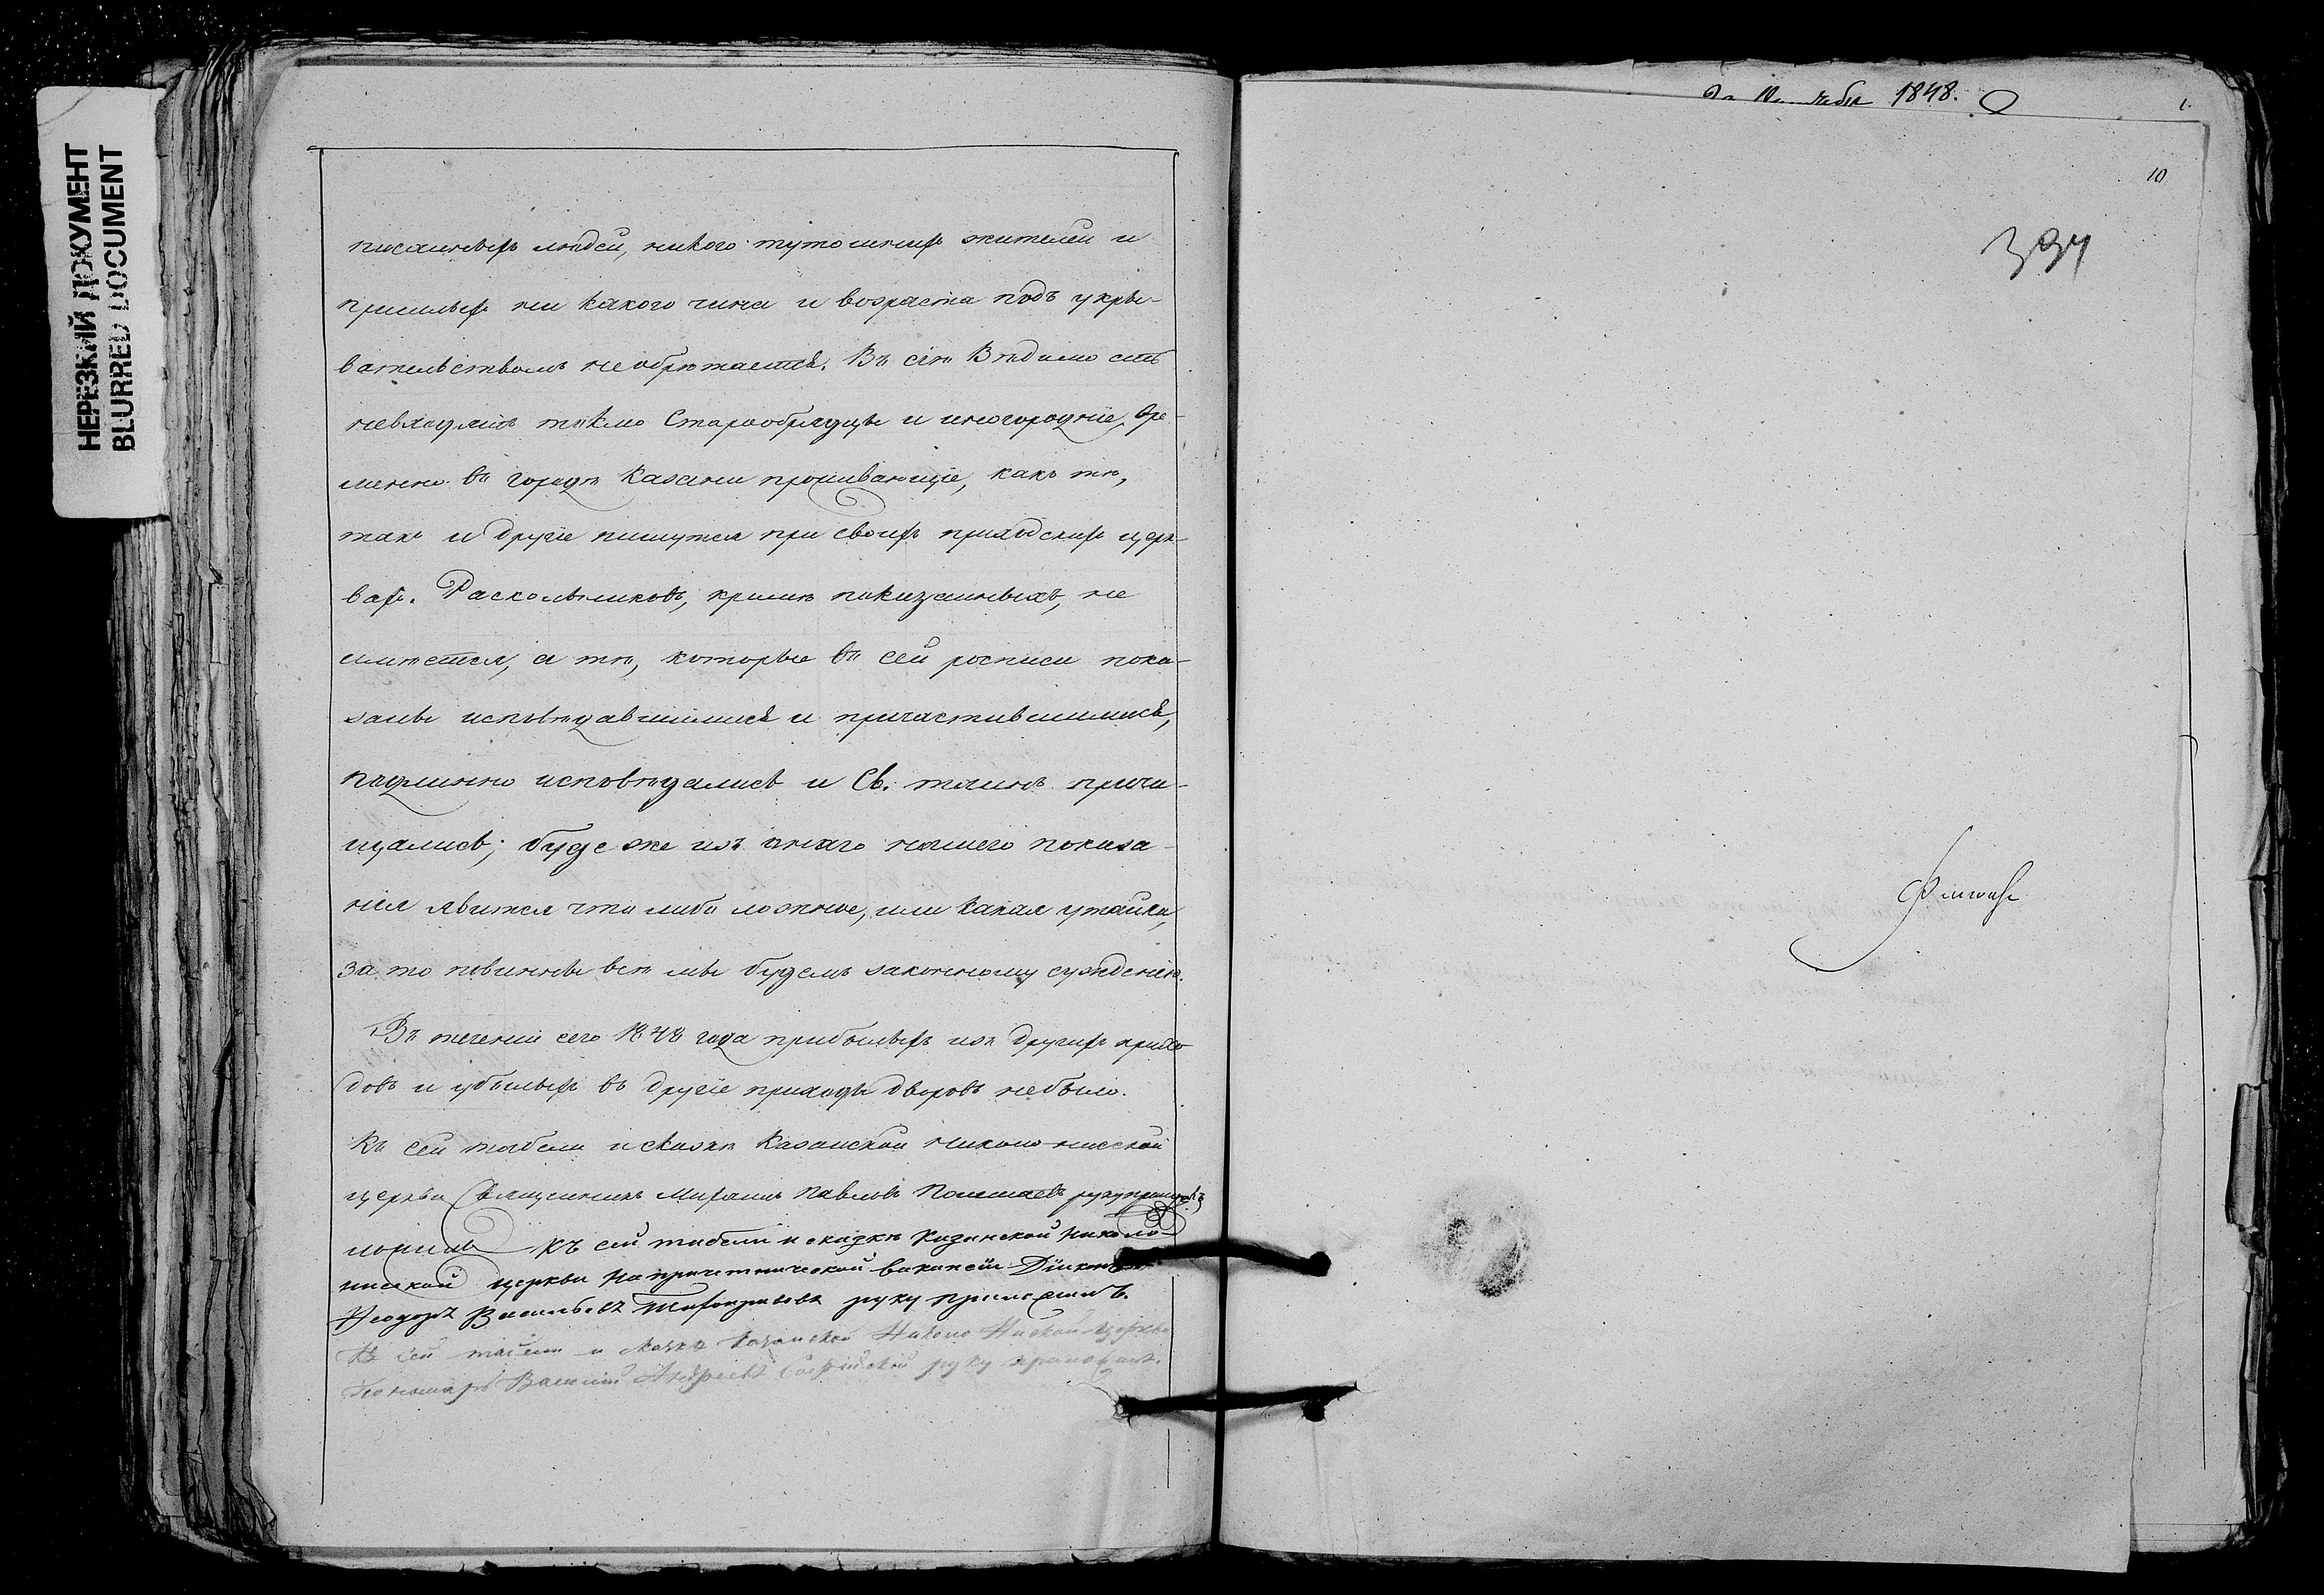 НЕРЕЗКИЙ ДОКУМЕНТ
BLURRED DOCUMENT
писанныхъ людей, никого тутошнихъ жителей и
пришлыхъ ни какого чина и возраста подъ укры-
вательствомъ не обрѣтается. Въ сію Вѣдомость
невходятъ токмо Старообрядцы и иногородніе, вре-
менно въ городѣ Казани проживающіе, какъ тѣ,
такъ и другіе пишутся при своихъ приходскихъ церк-
вахъ. Раскольниковъ, кромѣ показанныхъ, не
имѣется, а тѣ, которые въ сей росписи пока-
заны исповѣдавшимися и причастившимися,
подлинно исповѣдались и Св. таинъ прича-
щались; буде же изъ онаго нашего показа-
нія явится что либо ложное, или какая утайка,
за то повинны всѣ мы будемъ законному сужденію.
Въ теченіи сего 1848 года прибылыхъ изъ другихъ прихо-
довъ и убылыхъ въ другіе приходы дворовъ небыло.
Къ сей табели и сказкѣ Казанской Николо-нисской
церкви Священникъ Михаилъ Павловъ руку
Къ сей табели и сказкѣ Казанской Николо-
нисской церкви на причетнической вакансіи Діаконъ
Ѳеодоръ Васильевъ руку приложилъ.
Къ сей табели и сказкѣ Казанской Николо Ниской церкви
Пономарь Василій Андреевъ Софійской руку приложилъ.
1848.
1.
10
394